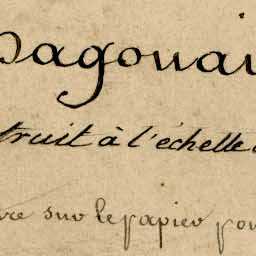 Dagouau
truit à l'échelle
re sur le papier pour